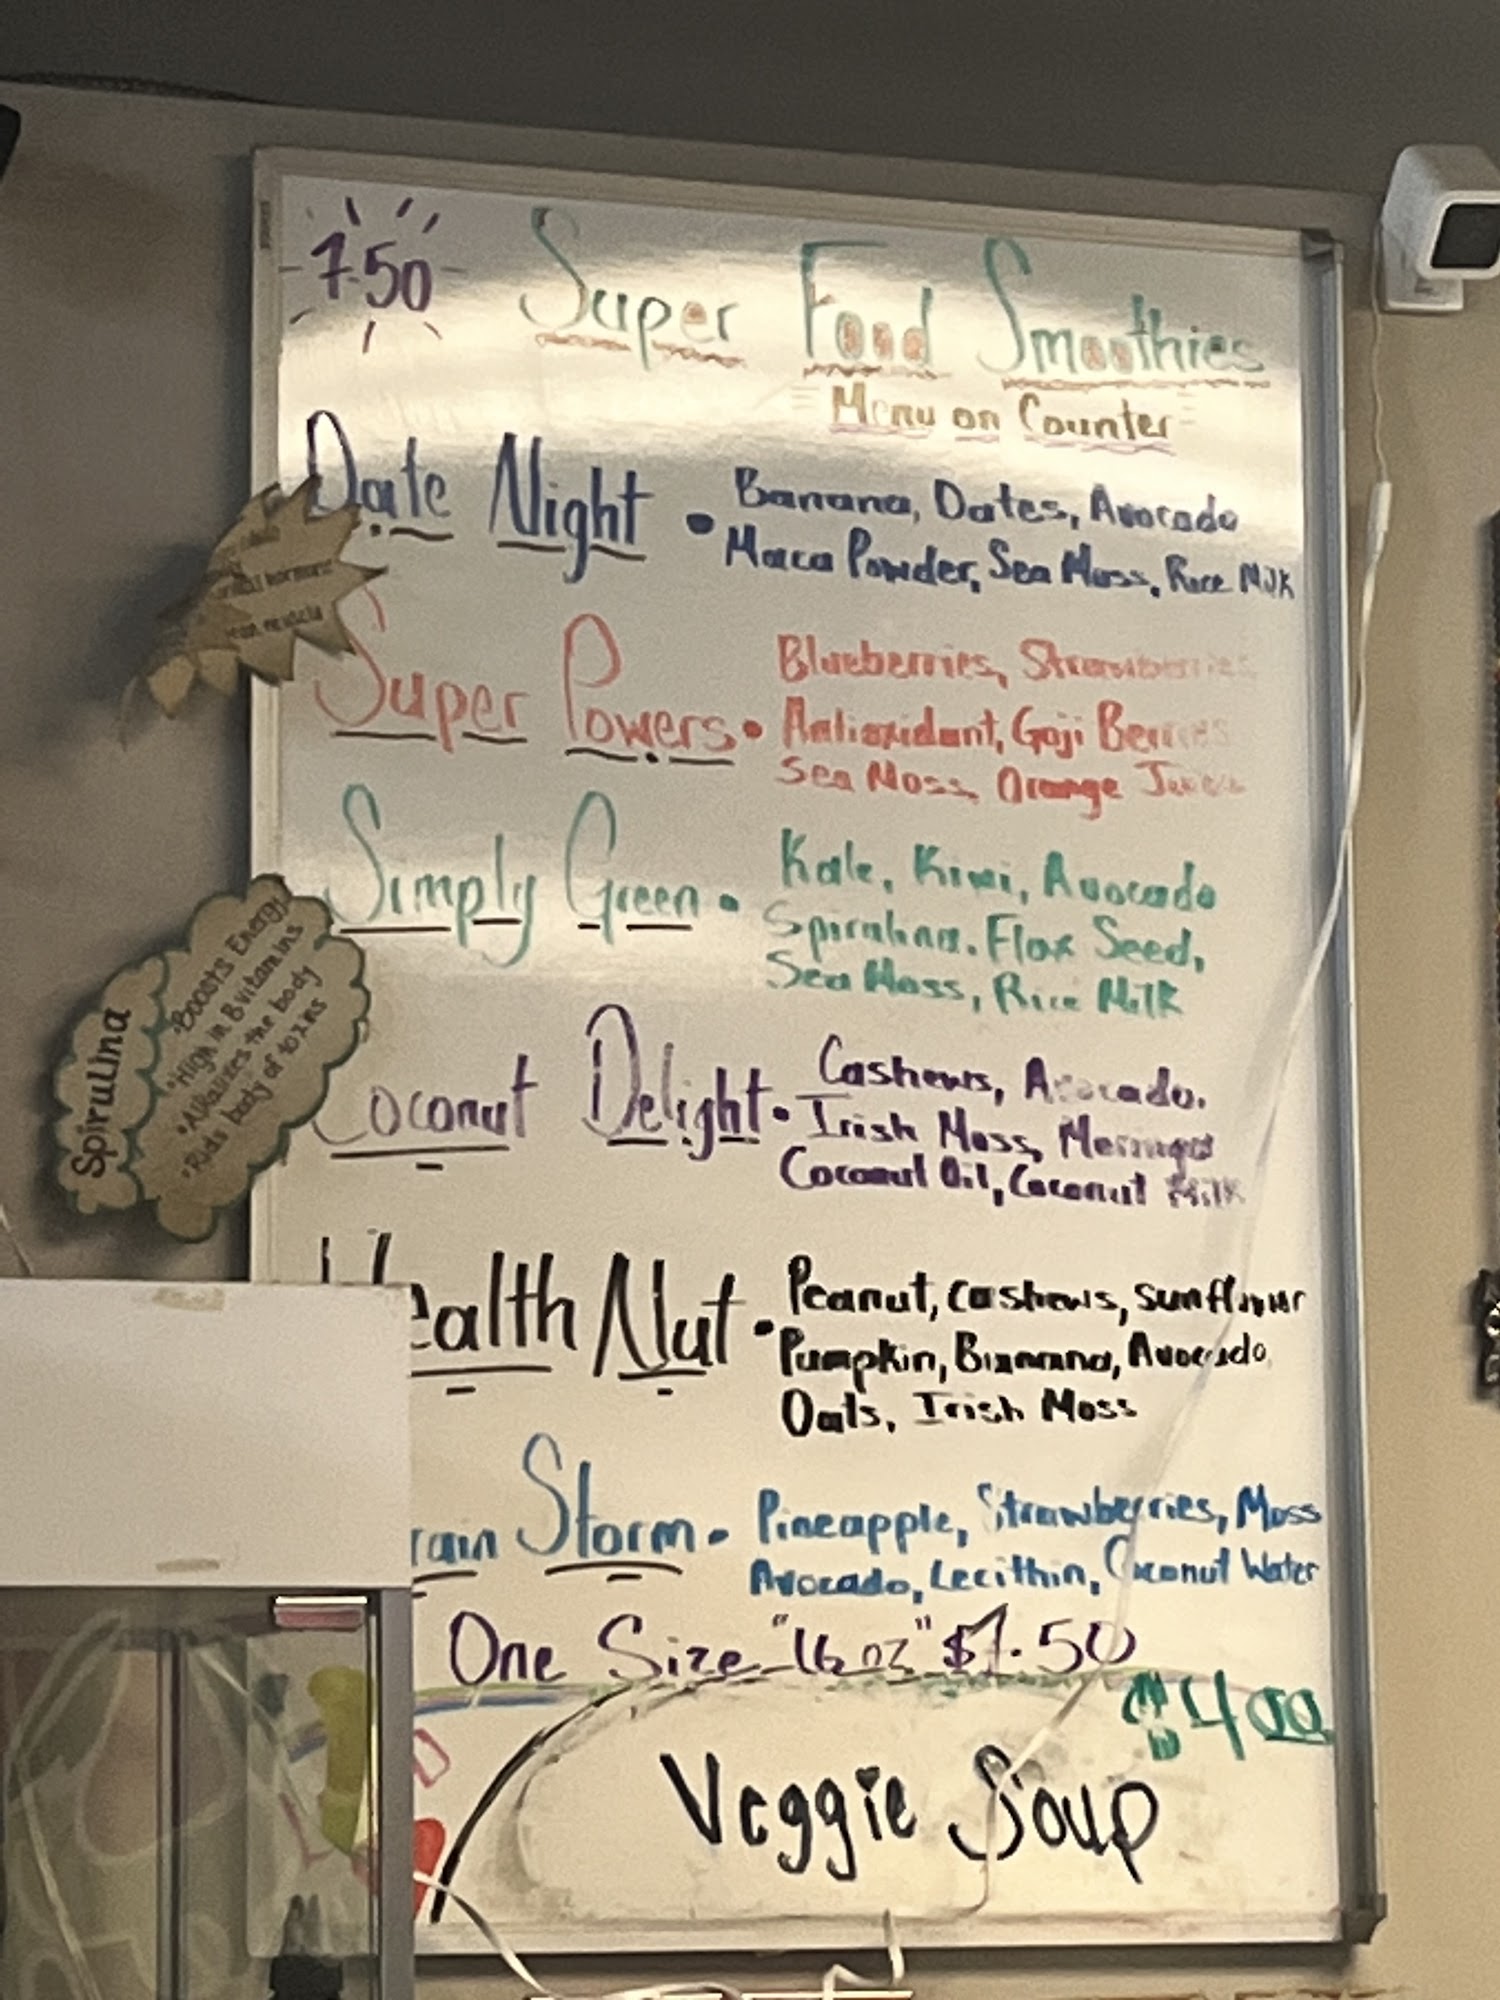 7.50
Super Food Smoothies
Menu on Counter
Date Night • Banana, Dates, Avocado
Maca Powder, Sea Moss, Rice Milk
Super Powers • Blueberries, Strawberries
Antioxidant, Goji Berries
Sea Moss, Orange Juice
Simply Green • Kale, Kiwi, Avocado
Spirulina. Flax Seed,
Sea Moss, Rice Milk
Spirulina
•Boosts Energy
•High in B vitamins
•Alkalizes the body
•Rids body of toxins
Coconut Delight • Cashews, Avocado.
Irish Moss,
Coconut Oil, Coconut Milk
Health Nut • Peanut, Cashews, Sunflower
Pumpkin, Avocado,
Oats, Irish Moss
rain Storm • Pineapple, Strawberries, Moss
Avocado, Lecithin, Coconut Water
One Size "16 oz" $7.50
$4.00
Veggie Soup